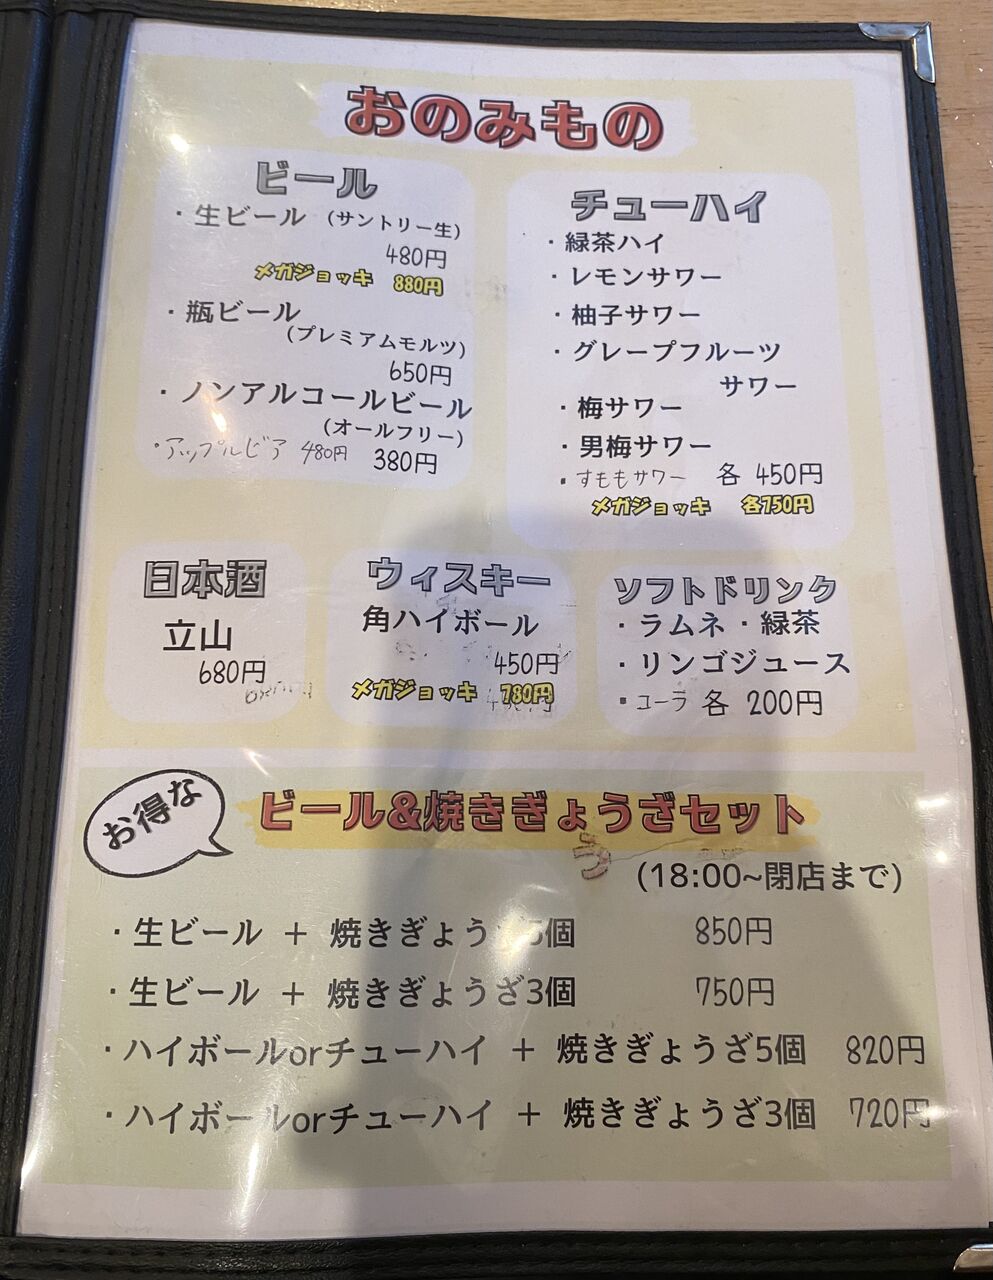 おのみもの
ビール
・生ビール (サントリー生)
480円
メガジョッキ 880円
・瓶ビール
(プレミアムモルツ)
650円
・ノンアルコールビール
(オールフリー)
380円
・アップルビア 480円
チューハイ
・緑茶ハイ
・レモンサワー
・柚子サワー
・グレープフルーツ
サワー
・梅サワー
・男梅サワー
・すももサワー 各 450円
メガジョッキ 各750円
日本酒
立山
680円
ウィスキー
角ハイボール
450円
メガジョッキ 780円
ソフトドリンク
・ラムネ ・緑茶
・リンゴジュース
・コーラ 各 200円
お得な
ビール&焼きぎょうざセット
う
(18:00~閉店まで)
・生ビール + 焼きぎょうざ5個 850円
・生ビール + 焼きぎょうざ3個 750円
・ハイボールorチューハイ + 焼きぎょうざ5個 820円
・ハイボールorチューハイ + 焼きぎょうざ3個 720円